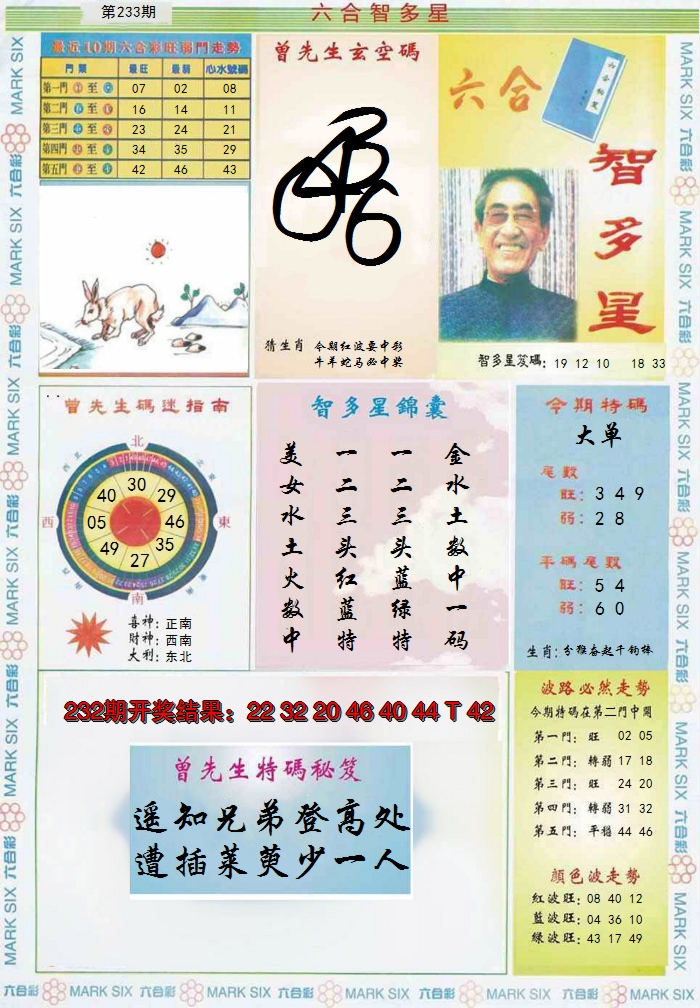 第233期
六合智多星
最近10期六合彩旺弱門走勢
門類 最旺 最弱 心水號碼
第一門 至 07 02 08
第二門 至 16 14 11
第三門 至 23 24 21
第四門 至 34 35 29
第五門 至 42 46 43
曾先生玄空碼
猜生肖 今期红波要中彩
牛羊蛇马必中奖
六合
智多星
智多星笈碼: 19 12 10 18 33
曾先生碼迷指南
北
西北
東北
西
東
南
30
29
46
35
27
49
05
40
喜神: 正南
財神: 西南
大利: 东北
智多星錦囊
金水土数中一码
一二三头蓝绿特
一二三头红蓝特
美女水土火数中
今期特碼
大单
尾數
旺: 3 4 9
弱: 2 8
平碼尾數
旺: 5 4
弱: 6 0
生肖: 分雅奋起千钧棒
232期开奖结果: 22 32 20 46 40 44 T 42
曾先生特碼秘笈
遥知兄弟登高处
遭插莱萸少一人
波路必然走勢
今期特碼在第二門中開
第一門: 旺 02 05
第二門: 轉弱 17 18
第三門: 旺 24 20
第四門: 轉弱 31 32
第五門: 平穩 44 46
顏色波走勢
紅波旺: 08 40 12
藍波旺: 04 36 10
綠波旺: 43 17 49
MARK SIX 六合彩